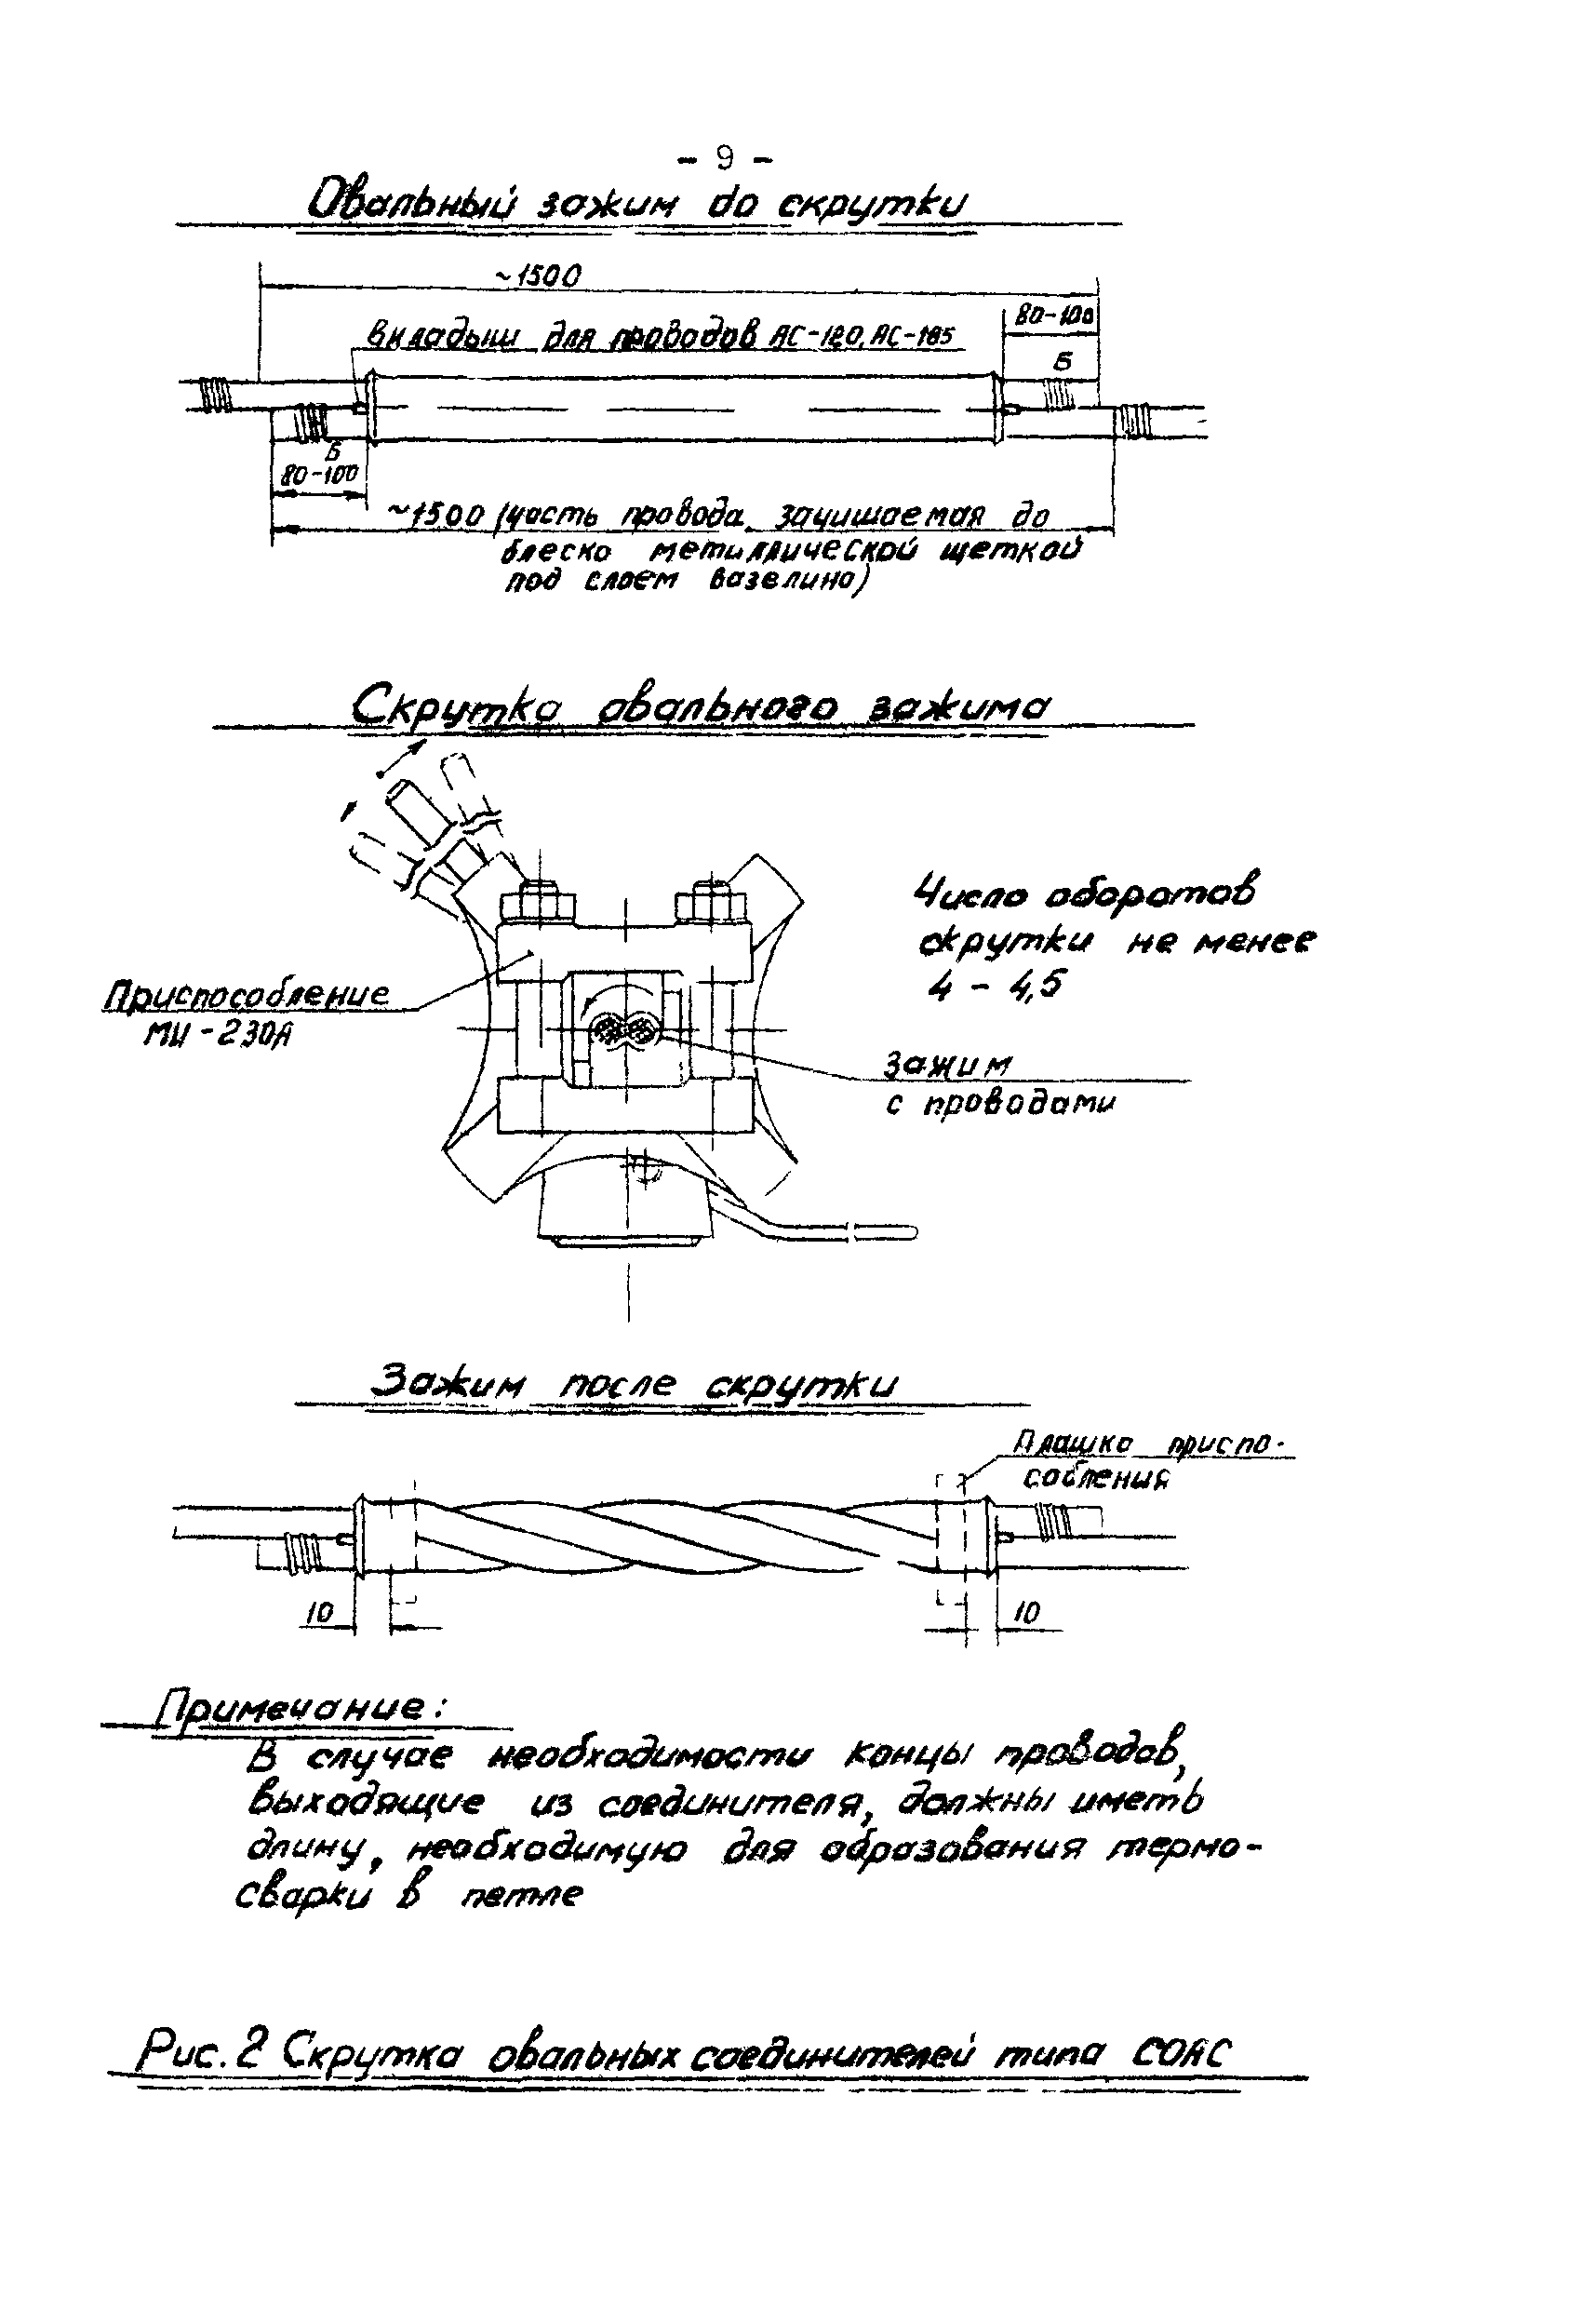 - 9 -
Овальный зажим до скрутки
~1500
80-100
Вкладыш для проводов АС-120, АС-185
Б
Б
80-100
~1500 (часть провода, зачищаемая до
блеска металлической щеткой
под слоем вазелина)
Скрутка овального зажима
Число оборотов
скрутки не менее
4 - 4,5
Приспособление
МИ-230А
Зажим
с проводами
Зажим после скрутки
Плашка приспо-
собления
10
10
Примечание:
В случае необходимости концы проводов,
выходящие из соединителя, должны иметь
длину, необходимую для образования термо-
сварки в петле
Рис. 2 Скрутка овальных соединителей типа СОАС